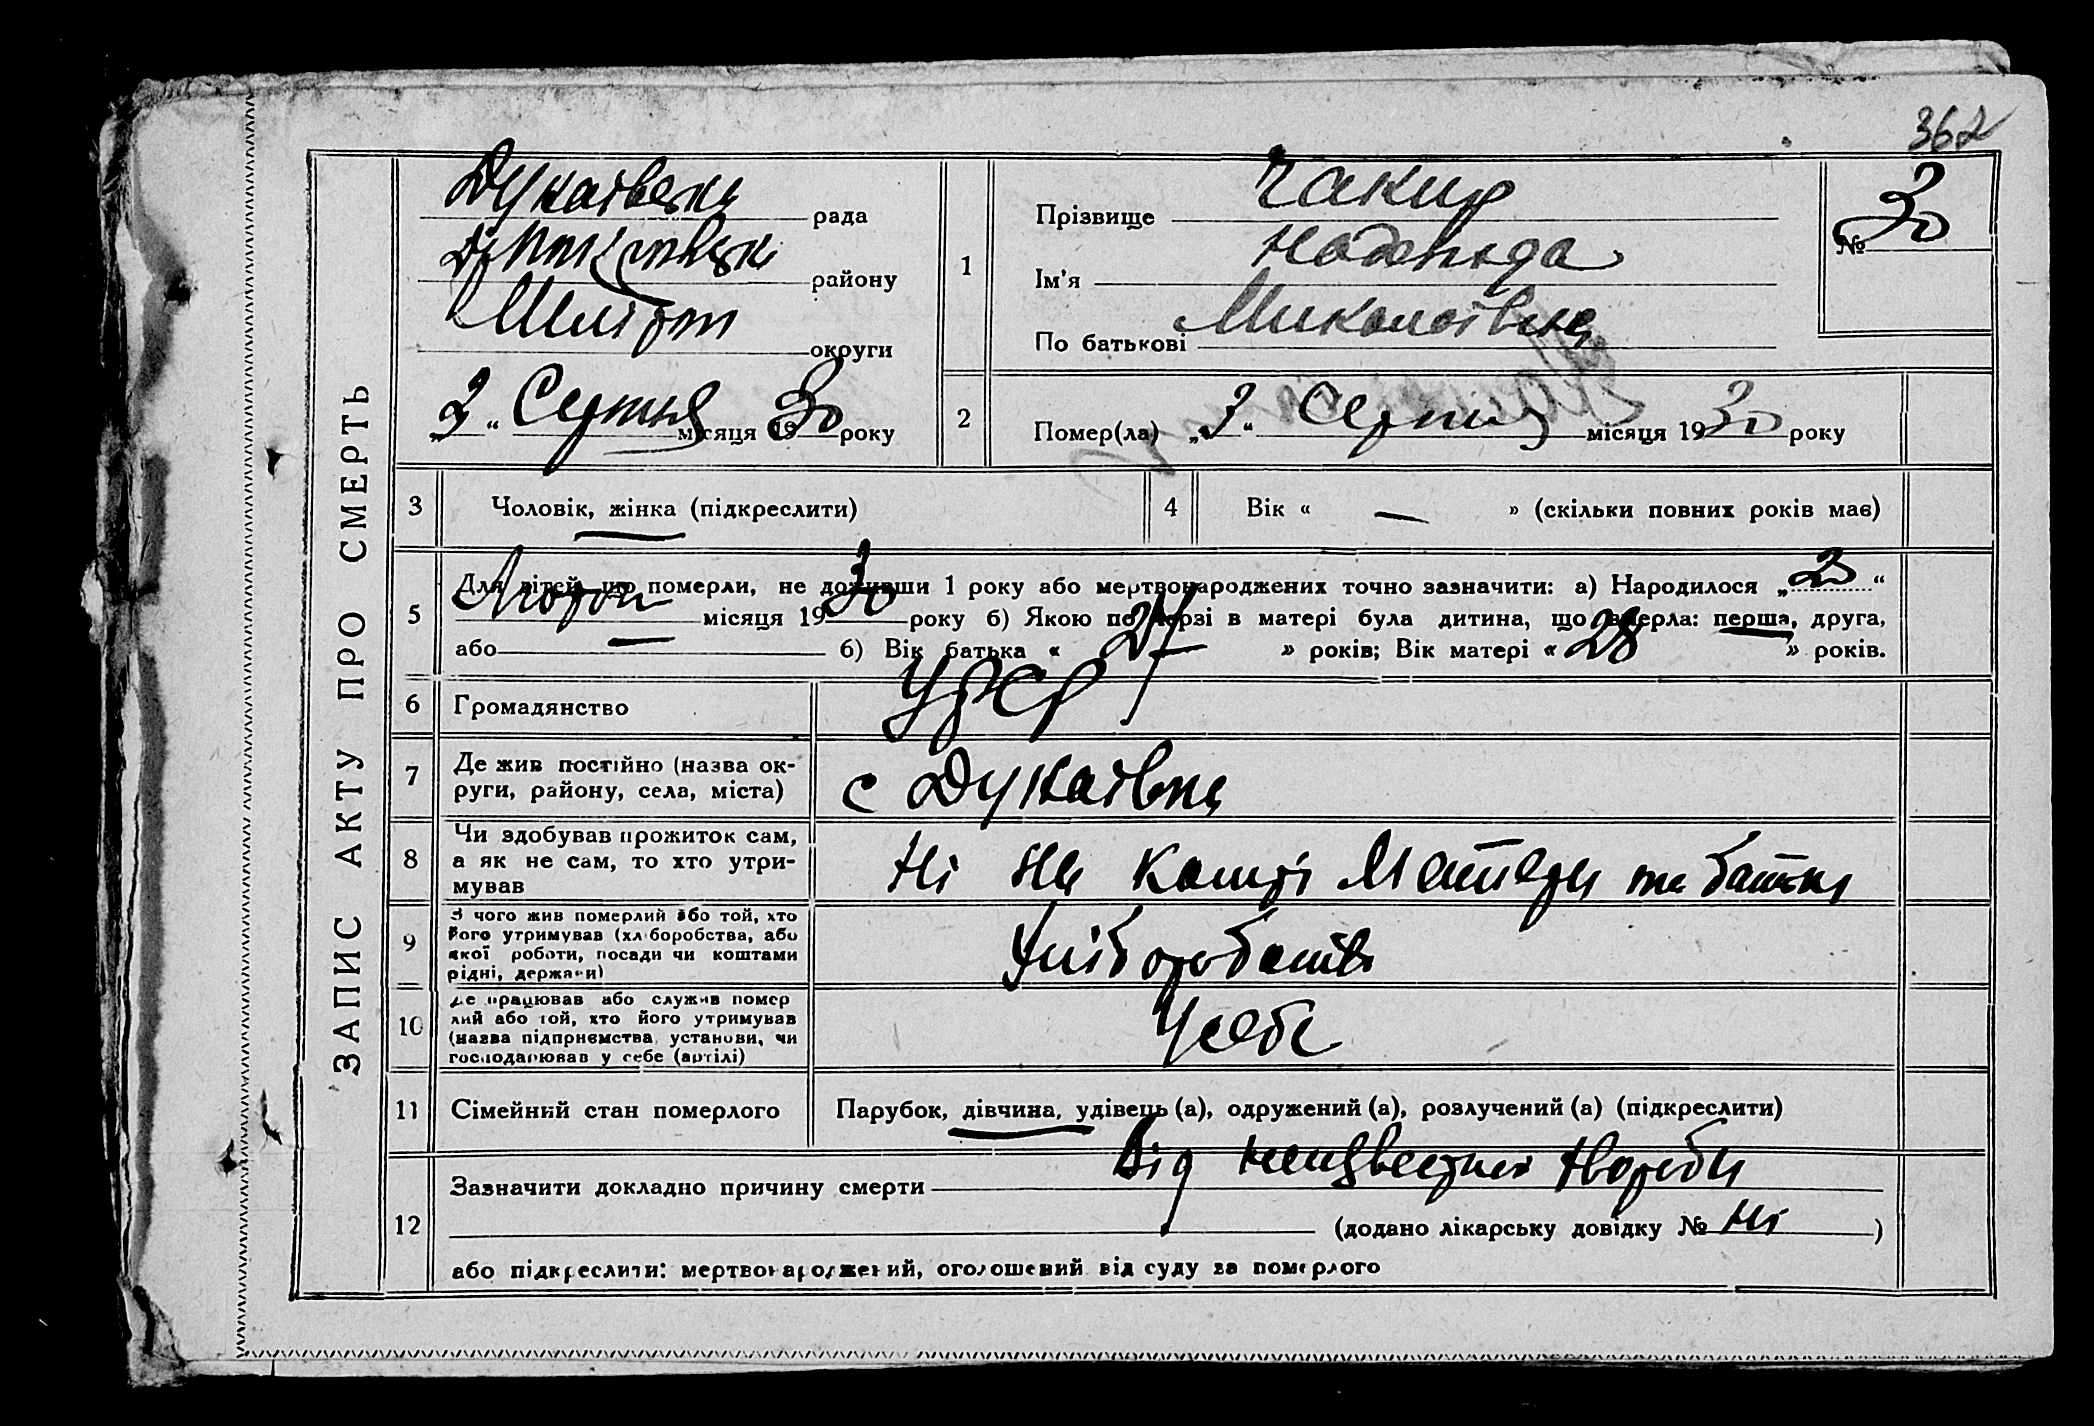 362
ЗАПИС АКТУ ПРО СМЕРТЬ
Дунаївська рада
району
Меліт округи
„3“ Серпня місяця 1930 року
1
Прізвище Чакир
Ім'я Надежда
По батькові Миколаївна
№ 30
2
Помер(ла) „3“ Серпня місяця 1930 року
3 Чоловік, жінка (підкреслити)
4 Вік « — » (скільки повних років має)
5 Для дітей, що померли, не доживши 1 року або мертвонароджених точно зазначити: а) Народилося „23“
Лютого місяця 1930 року б) Якою по черзі в матері була дитина, що вмерла: перша, друга,
або — б) Вік батька « 27 » років; Вік матері « 28 » років.
6 Громадянство УРСР
7 Де жив постійно (назва ок-
руги, району, села, міста) с Дунаївка
8 Чи здобував прожиток сам,
а як не сам, то хто утри-
мував Ні на кошті Матери та батька
9 З чого жив померлий або той, хто
його утримував (хліборобства, або
якої роботи, посади чи коштами
рідні, держави) Хліборобства
10 Де працював або служив помер
лий або той, хто його утримував
(назва підприємства, установи, чи
господарював у себе (артілі) У себе
11 Сімейний стан померлого Парубок, дівчина, удівець (а), одружений (а), розлучений (а) (підкреслити)
12 Зазначити докладно причину смерти Від неизвестної хвороби
(додано лікарську довідку № Ні )
або підкреслити: мертвонароджений, оголошений від суду за померлого